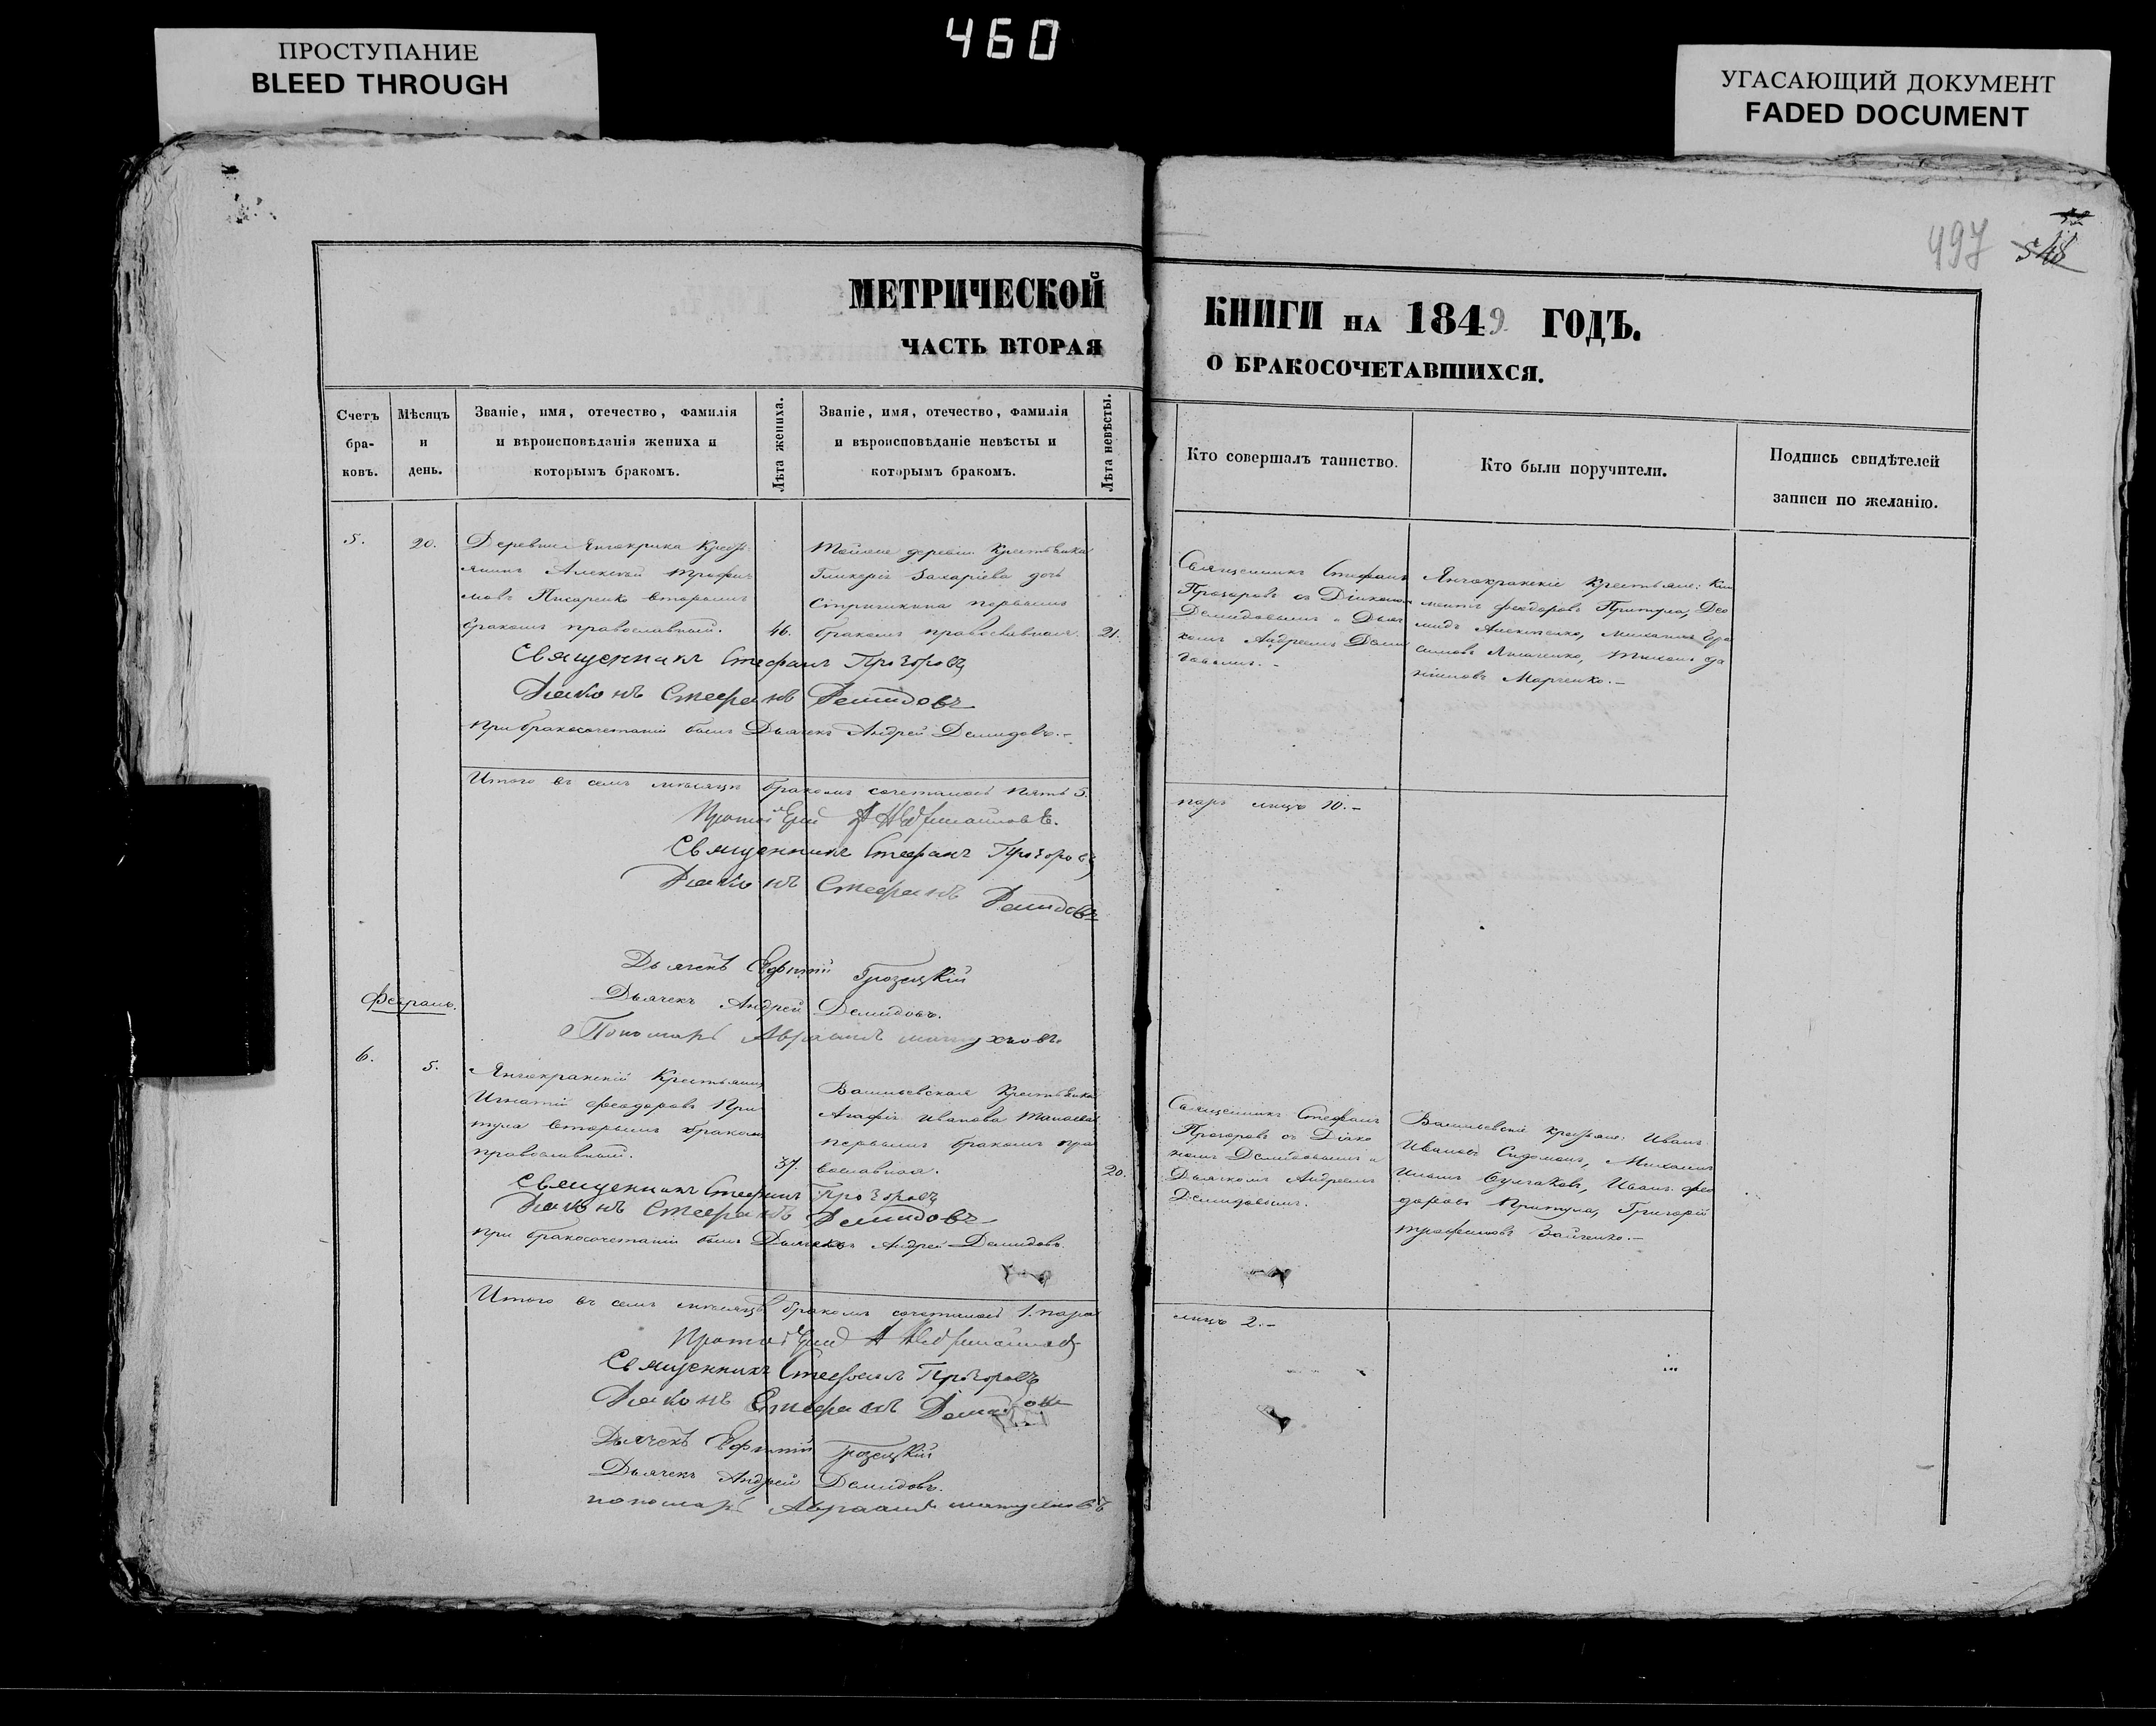 460
ПРОСТУПАНИЕ
BLEED THROUGH
УГАСАЮЩИЙ ДОКУМЕНТ
FADED DOCUMENT
497 548
МЕТРИЧЕСКОЙ КНИГИ НА 1849 ГОДЪ.
ЧАСТЬ ВТОРАЯ О БРАКОСОЧЕТАВШИХСЯ.
Счетъ
бра-
ковъ.
Мѣсяцъ
и
день.
Званіе, имя, отечество, фамилія
и вѣроисповѣданія жениха и
которымъ бракомъ.
Лѣта жениха.
Званіе, имя, отечество, фамилія
и вѣроисповѣданіе невѣсты и
которымъ бракомъ.
Лѣта невѣсты.
Кто совершалъ таинство.
Кто были поручители.
Подпись свидѣтелей
записи по желанію.
5.
20.
Деревни Янчокрака Кресть
янинъ Алексѣй Трофи
мовъ Писаренко вторымъ
бракомъ православный.
46.
Тойже деревни Крестьянка
Гликерія Захаріева дочь
первымъ
бракомъ православная.
21.
Священникъ Стефанъ
Прозоровъ съ Діакономъ
Демидовымъ и Дьяч
комъ Андреемъ Деми
довымъ.-
Янчокракскіе Крестьяне: Кли
ментъ Феодоровъ Притула, Део
мидъ Михаилъ
Тихонъ
Марченко.-
Священникъ Стефанъ Прозоровъ
Діаконъ Стефанъ Демидовъ
При бракосочетаніи былъ Дьячекъ Андрей Демидовъ.-
Итого въ семъ мѣсяцѣ бракомъ сочеталось пять 5.
паръ лицъ 10.-
Протоіерей А
Священникъ Стефанъ Прозоровъ
Діаконъ Стефанъ Демидовъ
Дьячекъ Ефимій Грозецкій
Дьячекъ Андрей Демидовъ.
Пономарь Авраамъ
Февраль.
6.
5.
Янчокракскій Крестьянинъ
Игнатій Феодоровъ При
тула вторымъ бракомъ
православный.
37.
Васильевская Крестьянка
Агафія Иванова
первымъ бракомъ пра
вославная.
20.
Священникъ Стефанъ
Прозоровъ съ Діако
номъ Демидовымъ и
Дьячкомъ Андреемъ
Демидовымъ.
Васильевскіе крестьяне: Иванъ
Ивановъ Михаилъ
Булгаковъ, Иванъ Фео
доровъ Притула, Григорій
Трофимовъ Зайченко.-
Священникъ Стефанъ Прозоровъ
Діаконъ Стефанъ Демидовъ
При бракосочетаніи былъ Дьячекъ Андрей Демидовъ.
Итого въ семъ мѣсяцѣ бракомъ сочеталось 1. пара
лицъ 2.-
Протоіерей А
Священникъ Стефанъ Прозоровъ
Діаконъ Стефанъ Демидовъ
Дьячекъ Ефимій Грозецкій
Дьячекъ Андрей Демидовъ.
пономарь Авраамъ